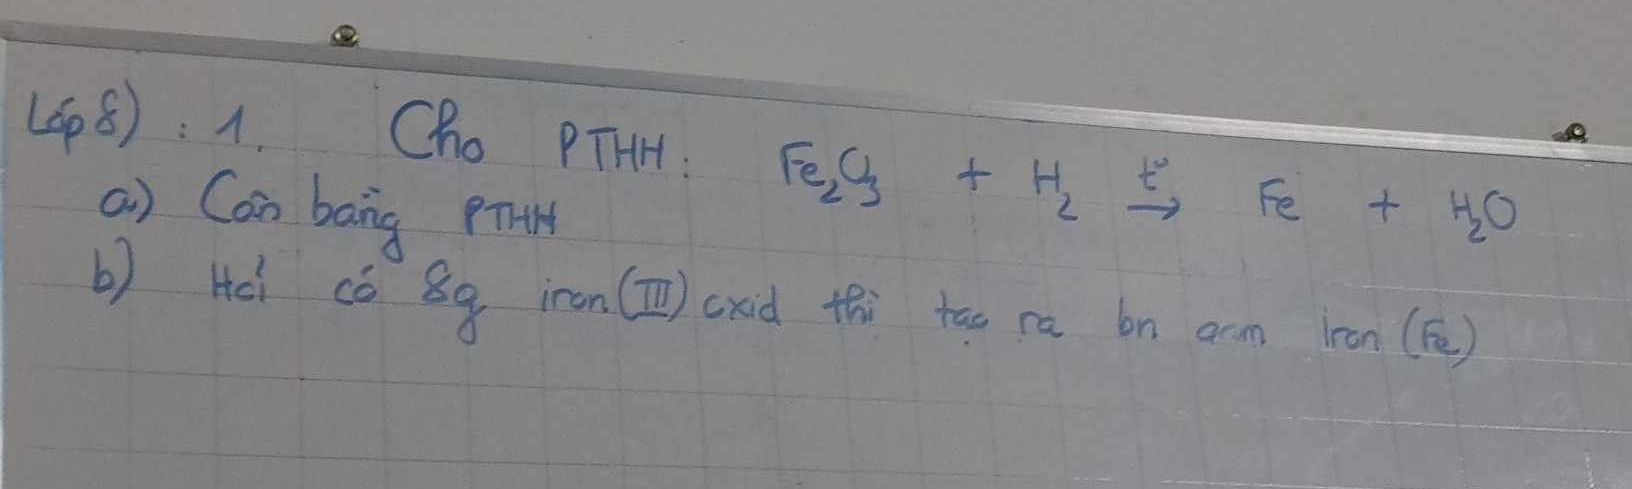 Lớp 8) : 1. Cho PTHH: Fe₂O₃ + H₂ t° → Fe + H₂O
a) Cân bằng PTHH
b) Hỏi có 8g iron (III) oxid thì tạo ra bn gam iron (Fe)